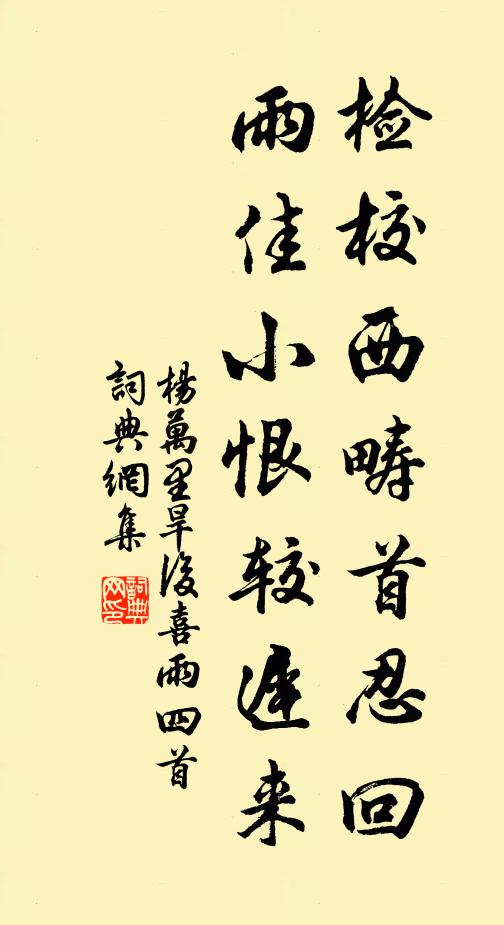 检校西畴首忍回
雨佳小恨较遲来
楊萬里旱後喜雨四首
詞典網集
詞典網印